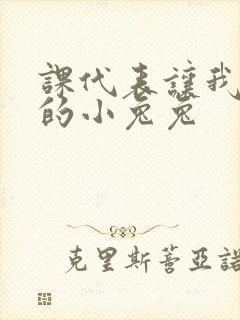 課代表讓我
的小兔兔
克里斯蒂亞諾